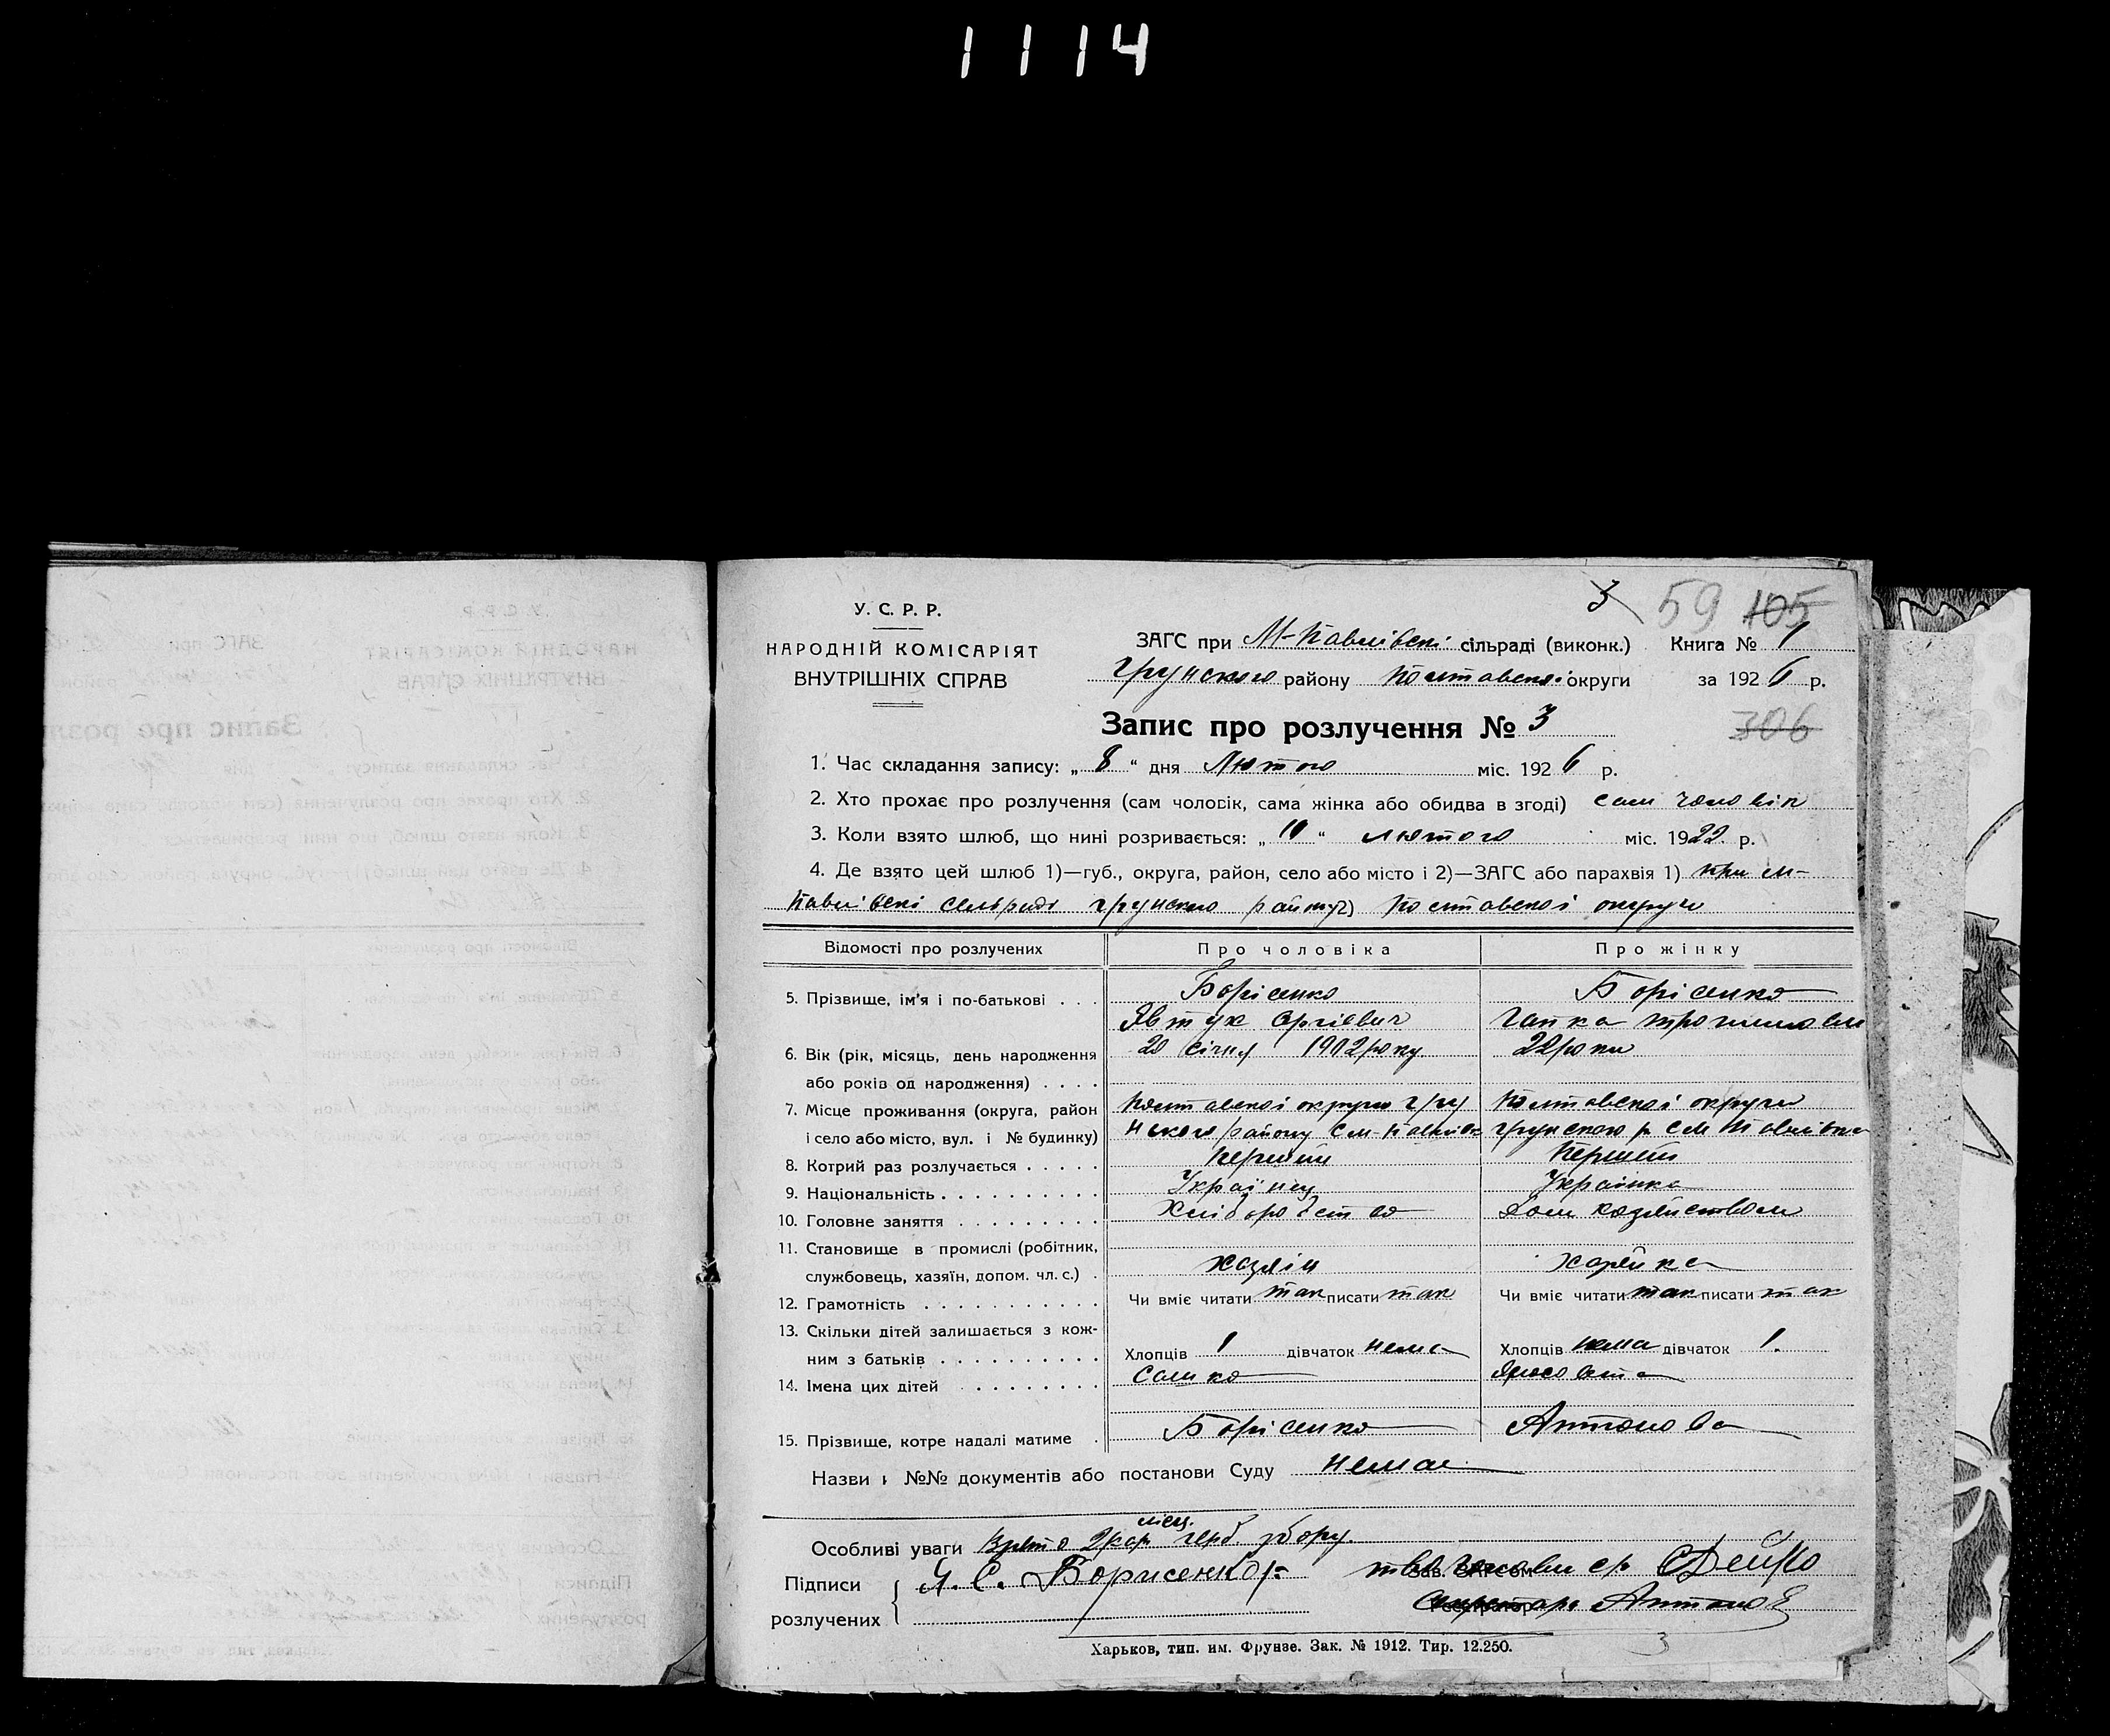 1114
3 59 105
У. С. Р. Р.
НАРОДНІЙ КОМІСАРІЯТ
ВНУТРІШНІХ СПРАВ
ЗАГС при М-Павлівскі сільраді (виконк.) Книга № 1
Грунского району Полтавскоі округи за 1926 р.
Запис про розлучення № 3
306
1. Час складання запису: „ 8 “ дня Лютого міс. 1926 р.
2. Хто прохає про розлучення (сам чоловік, сама жінка або обидва в згоді) сам чоловік
3. Коли взято шлюб, що нині розривається: „ 10 “ лютого міс. 1922 р.
4. Де взято цей шлюб 1)—губ., округа, район, село або місто і 2)—ЗАГС або парахвія 1) при М-
Павлівскі сельраді грунского району 2) Полтавскоі округи
Відомості про розлучених Про чоловіка Про жінку
5. Прізвище, ім'я і по-батькові . . . Борісенко Борісенко
Явтух Сргієвич Гапка
6. Вік (рік, місяць, день народження 20 січня 1902 року 22 роки
або років од народження) . . . .
7. Місце проживання (округа, район Полтавскоі округи Гру Полтавскоі округи
і село або місто, вул. і № будинку) нского району С М-Павлівк грунского р С М Павлівка
8. Котрий раз розлучається . . . . . Перший Перший
9. Національність . . . . . . . . . . Украінец Украінка
10. Головне заняття . . . . . . . . . Хліборобство Дом хозяйством
11. Становище в промислі (робітник,
службовець, хазяїн, допом. чл. с.) . хазяін хазяйка
12. Грамотність . . . . . . . . . . . Чи вміє читати так писати так Чи вміє читати так писати так
13. Скільки дітей залишається з кож-
ним з батьків . . . . . . . . . . Хлопців 1 дівчаток нема Хлопців нема дівчаток 1.
14. Імена цих дітей . . . . . . . . Сашко
15. Прізвище, котре надалі матиме . Борісенко Антонова
Назви і №№ документів або постанови Суду немає
місц.
Особливі уваги Взято 2 кар герб. збору.
Підписи Я. С. Борисенко
розлучених Секретарь Антонов
Харьков, тип. им. Фрунзе. Зак. № 1912. Тир. 12.250.
3